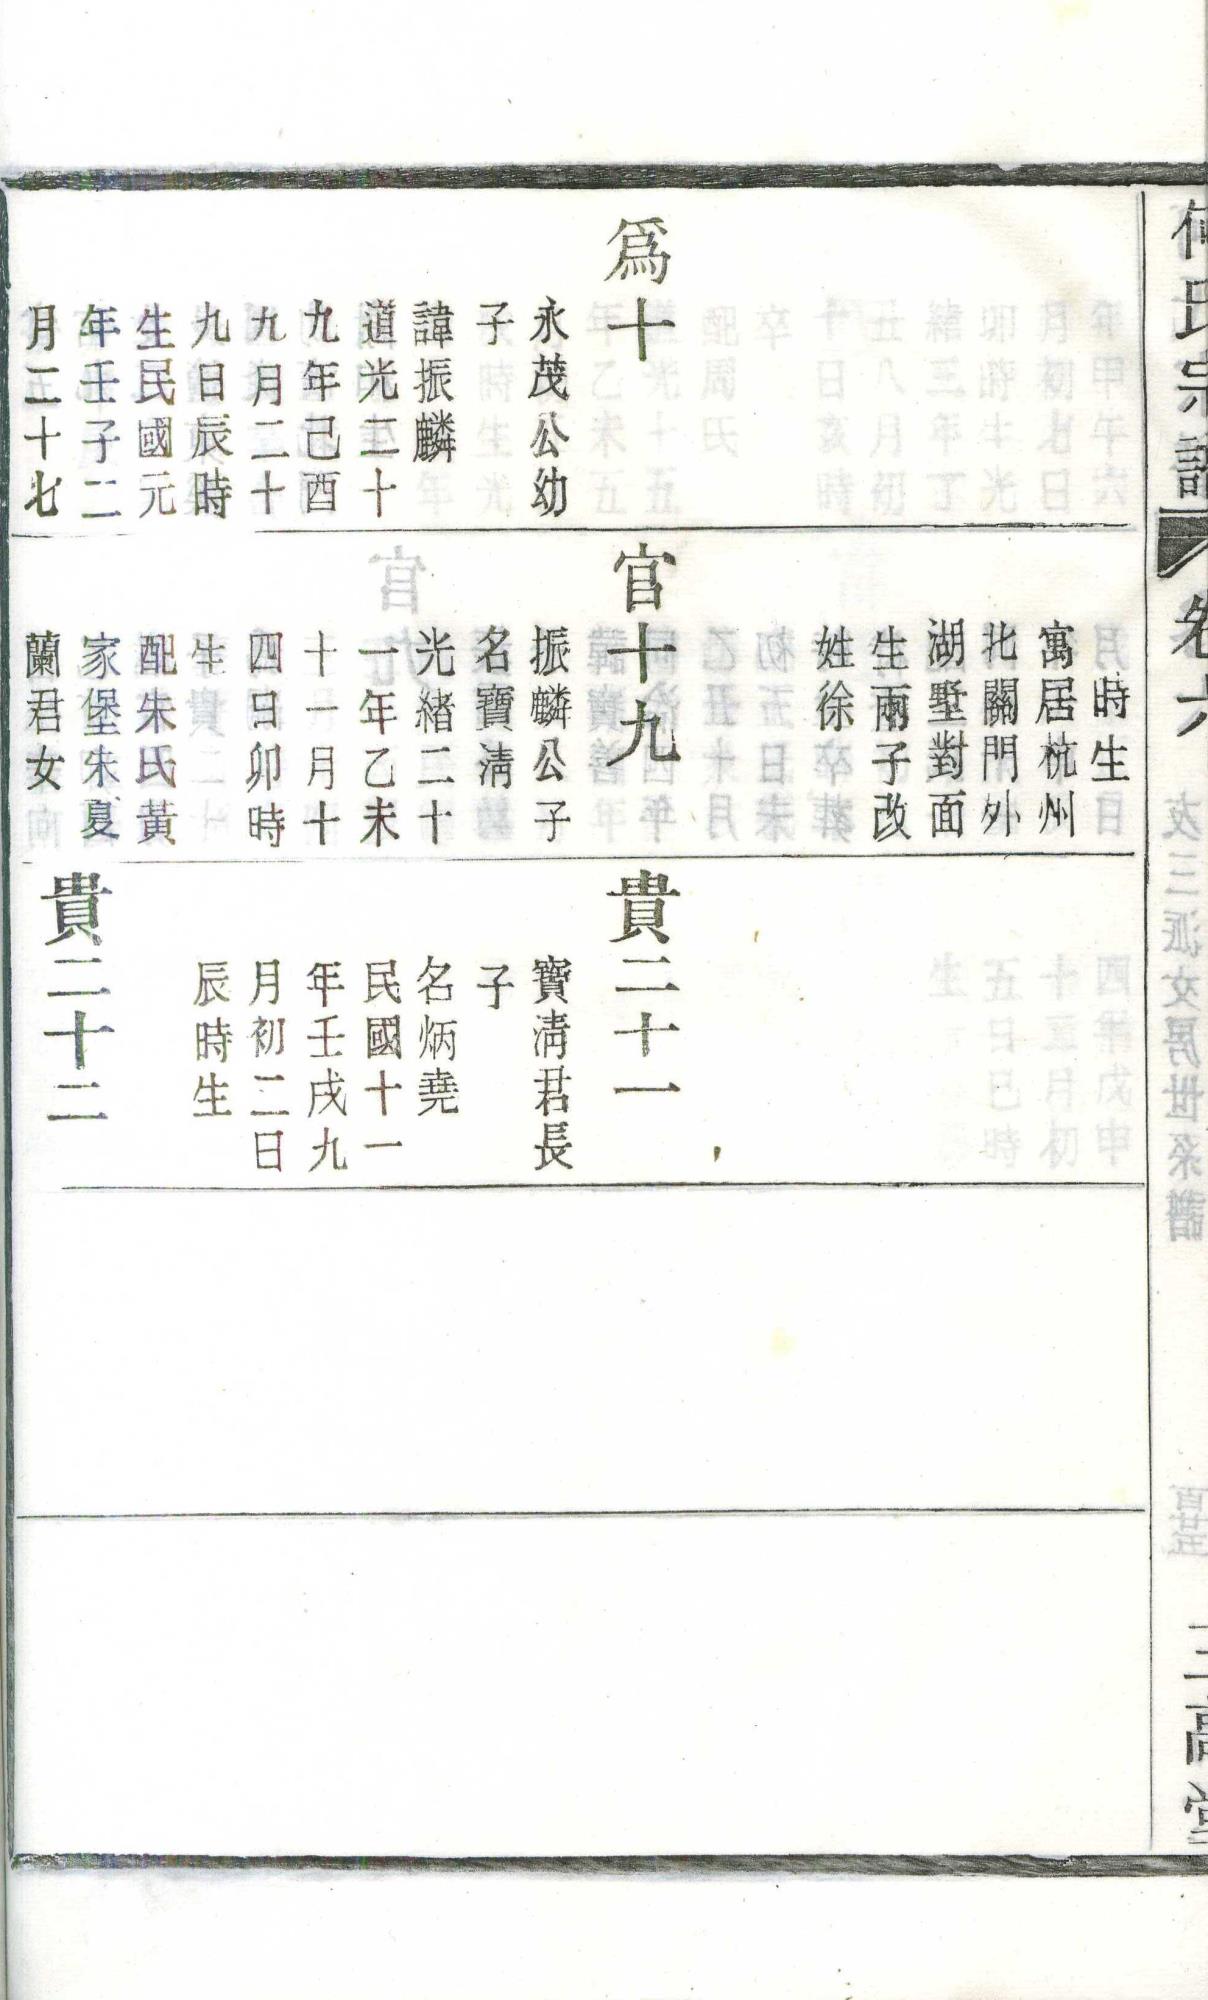 何氏宗譜
卷六
三高堂
爲十
永茂公幼
子
諱振麟
道光二十
九年己酉
九月二十
九日辰時
生民國元
年壬子二
月二十七
時生
寓居杭州
北關門外
湖墅對面
生兩子改
姓徐
官十九
振麟公子
名寶清
光緒二十
一年乙未
十一月十
四日卯時
生
配朱氏黃
家堡朱夏
蘭君女
貴二十一
寶清君長
子
名炳堯
民國十一
年壬戌九
月初二日
辰時生
貴二十二